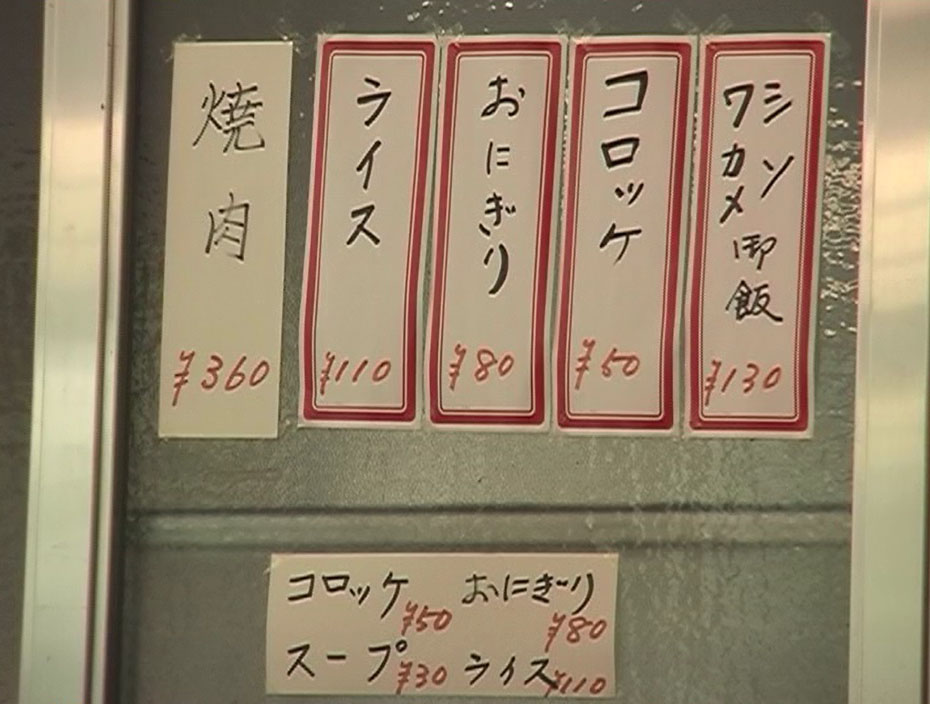 シソ
ワカメ御飯
¥130
コロッケ
¥50
おにぎり
¥80
ライス
¥110
焼肉
¥360
コロッケ ¥50 おにぎり ¥80
スープ ¥30 ライス ¥110